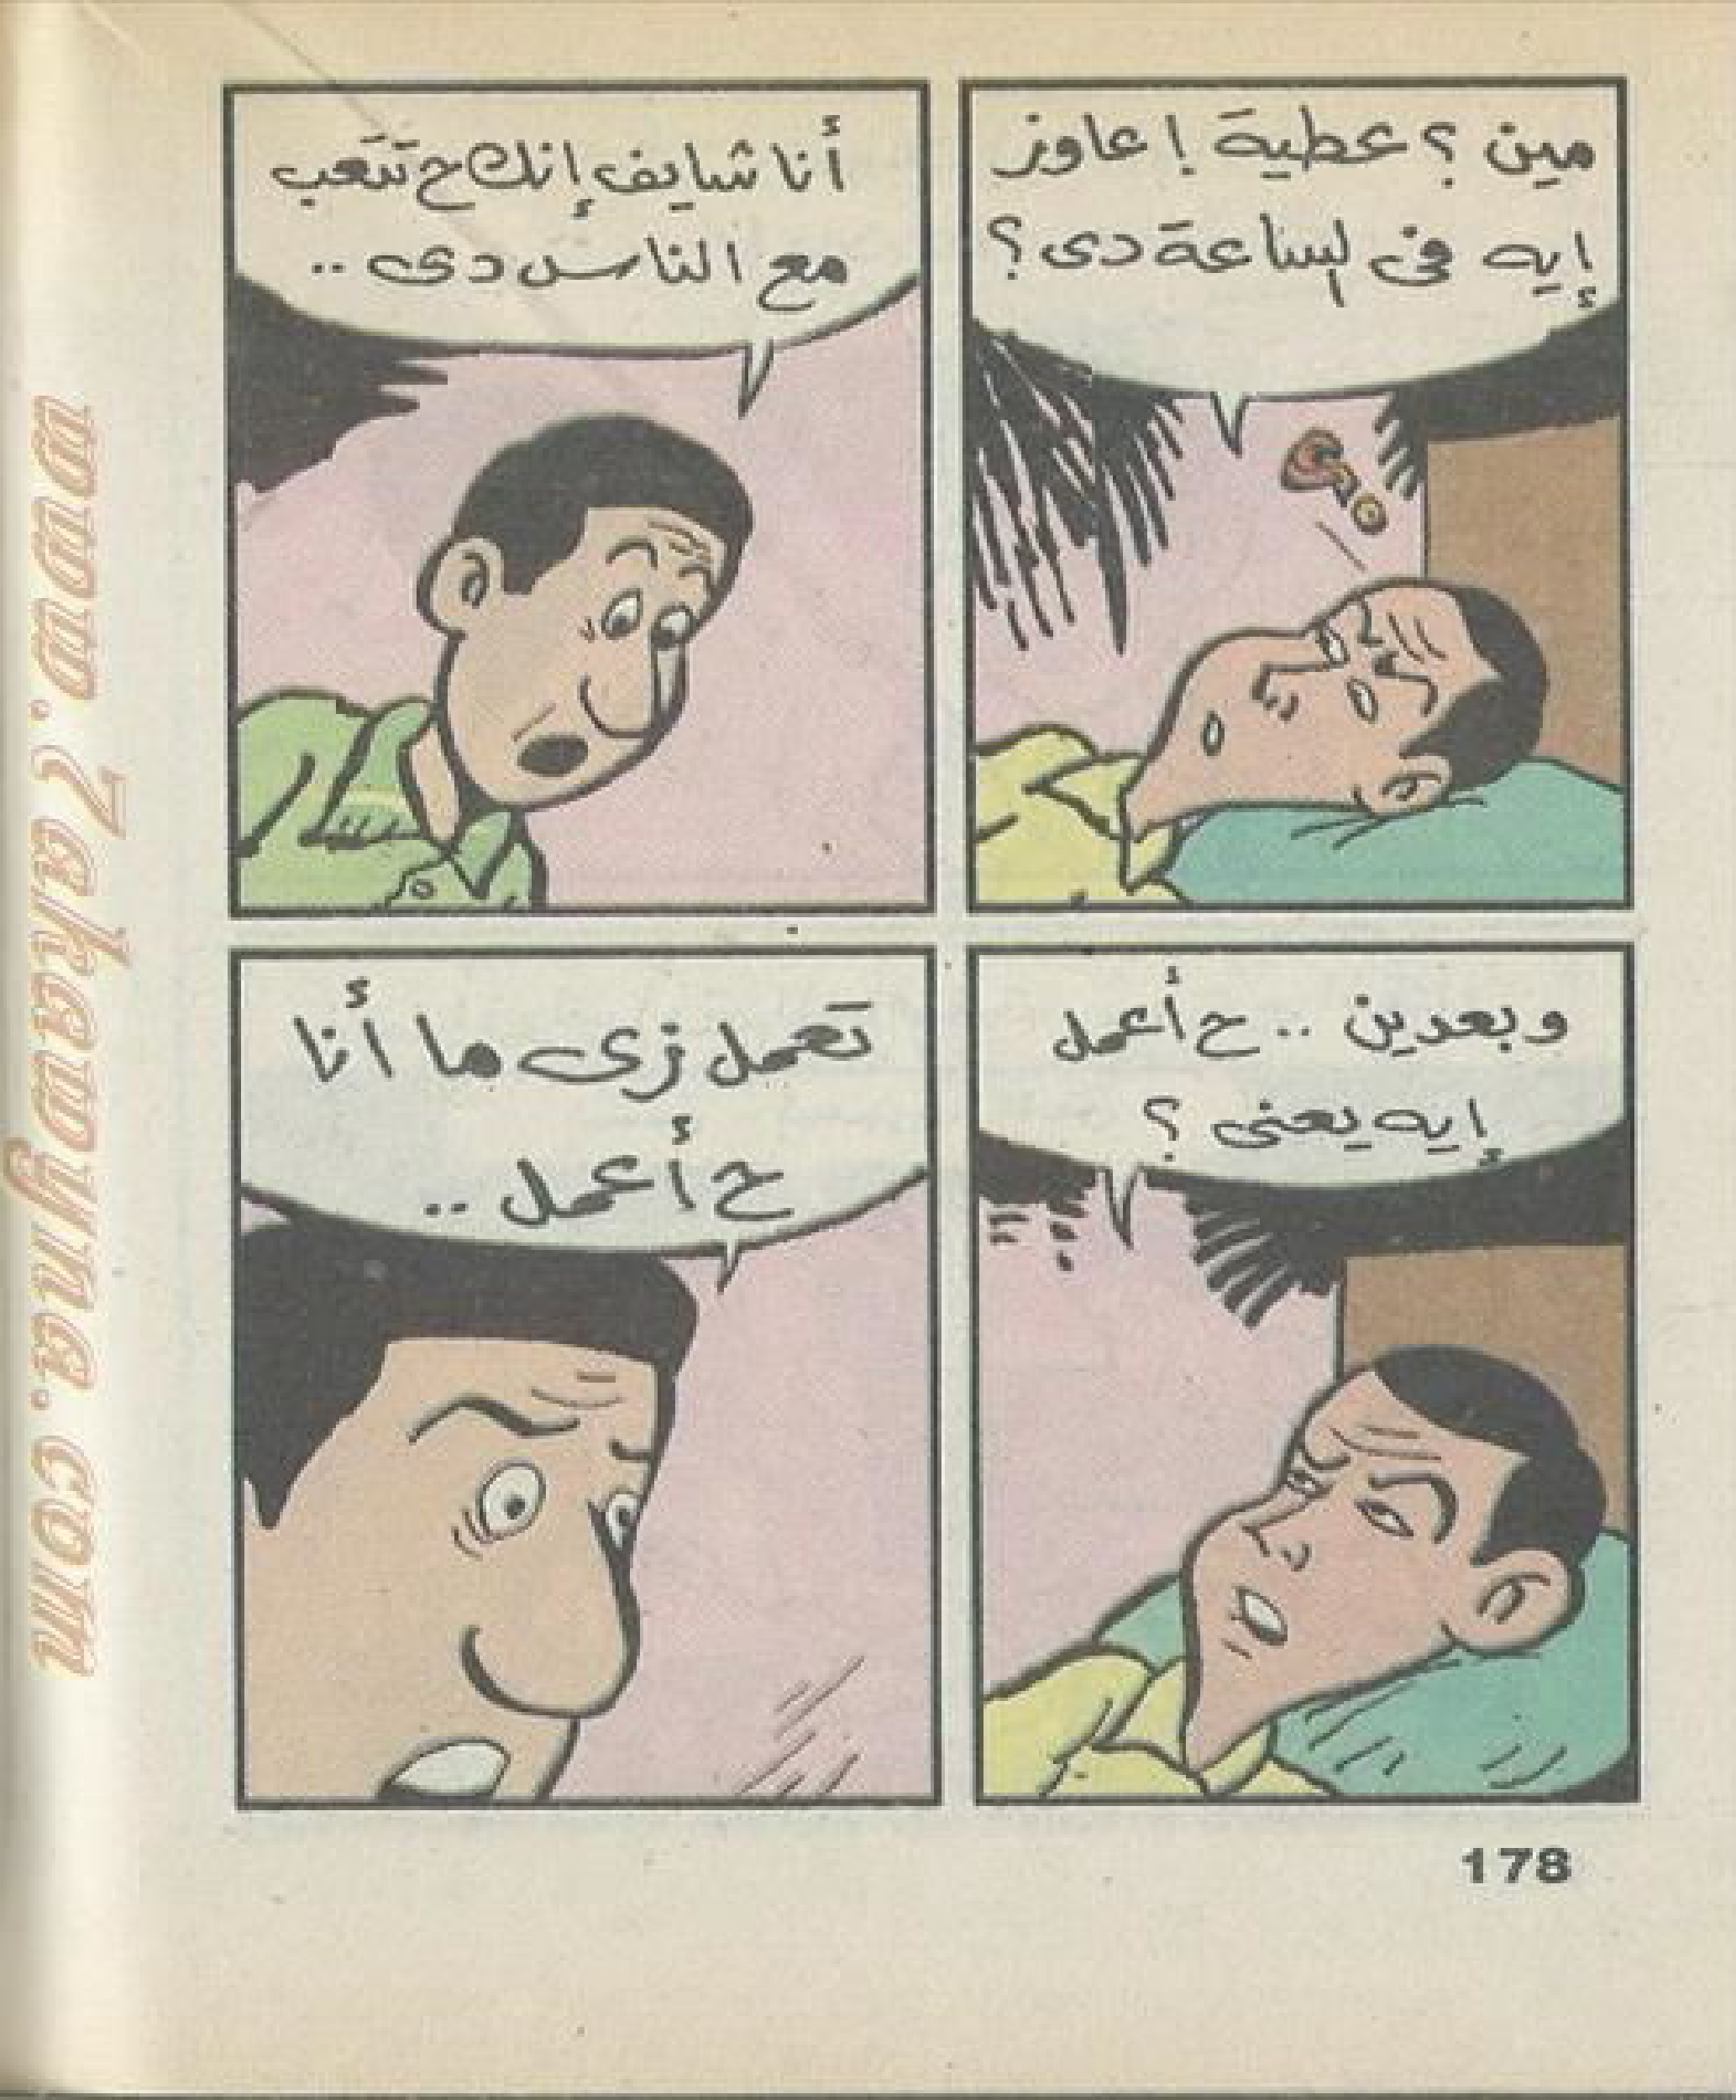 مين ؟ عطية ! عاوز
إيه فى الساعة دى ؟
أنا شايف إنك ح تتعب
مع الناس دى ..
وبعدين .. ح أعمل
إيه يعنى ؟
تعمل زى ما أنا
ح أعمل ..
178
www.7ekawyina.com